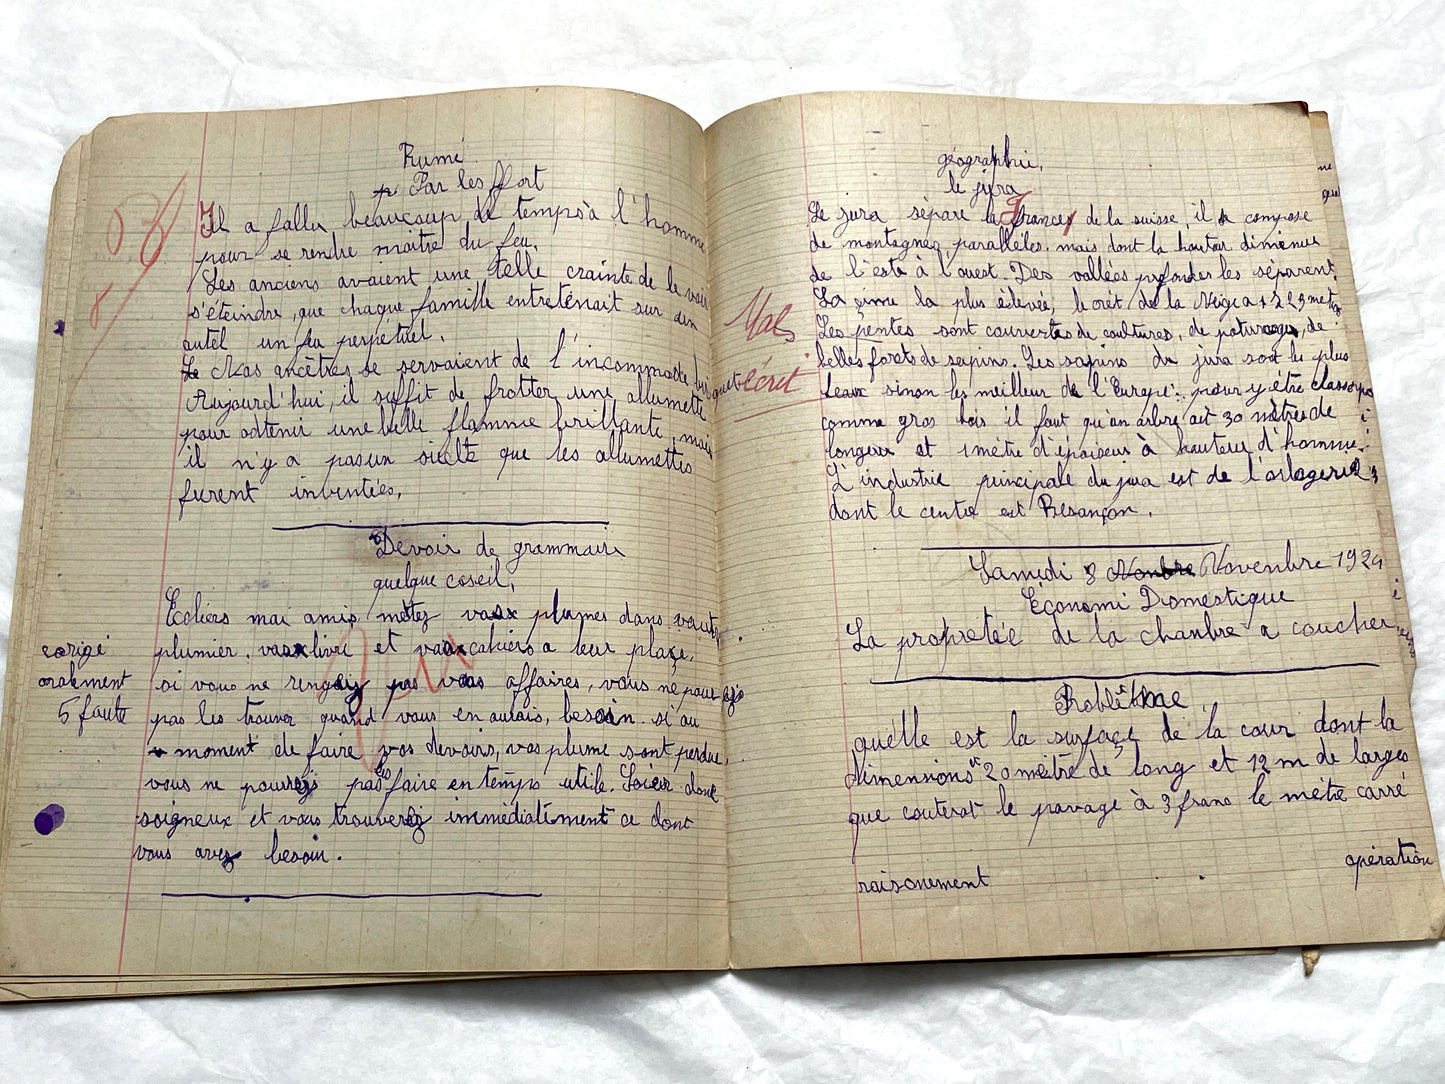 Rumé
Par les ffort
Il a fallu beaucoup de temps à l'homme
pour se rendre maitre du feu.
Les anciens avaient une telle crainte de le voir
s'éteindre, que chaque famille entretenait sur un
autel un feu perpétuel.
Le Nos ancêtres se servaient de l'incommode briquet
Aujourd'hui, il suffit de frotter une allumette
pour obtenir une belle flamme brillante, mais
il n'y a pas un siècle que les allumettes
furent inventées.
Devoir de grammair
quelque coseil.
Ecoliers mai amis, métez vos plumes dans votre
plumier, vos livre et vos cahiers a leur plaçe.
si vous ne rengez pas vos affaires, vous ne pourez
pas les trouver quand vous en aurais, besoin. si au
moment de faire vos devoirs, vos plume sont perdue,
vous ne pourrez pas les faire en temps utile. Soier donc
soigneux et vous trouverez immédiatement ce dont
vous avez besoin.
corigé
oralement
5 faute
Vu
géographie.
le jura
Le jura sépare la France de la suisse, il se compose
de montagnes paralléles, mais dont la hauteur diminue
de l'este à l'ouest. Des vallées profondes les séparent
La çime la plus élevée, le crêt de la Neige a 1723 metres
Les pentes sont couvertes de cultures, de paturages, de
belles forets de sapins. Les sapins du jura sont les plus
beaux sinon les meilleur de l'Europe: pour y être classé
comme gros bois il faut qu'un arbre ait 30 mètres de
longeur et 1 mètre d'épaiseur à hauteur d'homme.
L'industrie principale du jura est de l'orlogerie
dont le centre est Besançon.
Mal
écrit
Samedi 8 Novenbre 1924
Économi Domestique
La propretée de la chanbre a coucher
Problème
quélle est la surface de la cour dont la
dimennions 20 mètre de long et 12 m de larges
que couterat le pavage à 3 franc le mètre carré
raisonement
opération